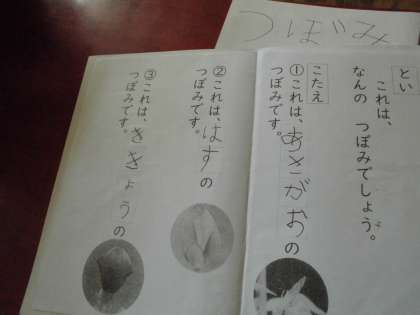 つぼみ
とい
これは、
なんの つぼみでしょう。
こたえ
①これは、あさがおの
つぼみです。
②これは、はすの
つぼみです。
③これは、ききょうの
つぼみです。